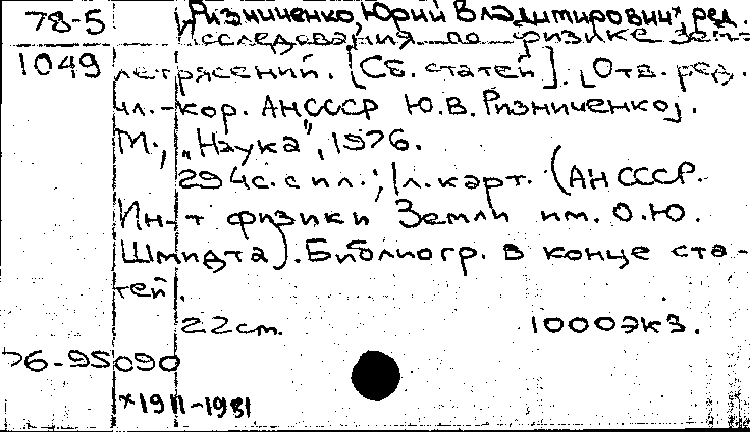 78-5 Ризниченко, Юрий Владимирович*, ред.
Исследования по физике Зем-
1049 летрясений. [Сб. статей]. [Отв. ред.
чл.-кор. АНСССР Ю.В.Ризниченко].
М., "Наука", 1976.
294с. с ил.; 1л. карт. (АН СССР.
Ин-т физики Земли им. О.Ю.
Шмидта). Библиогр. в конце ста-
тей.
22см. 1000экз.
76-95090
*1911-1981